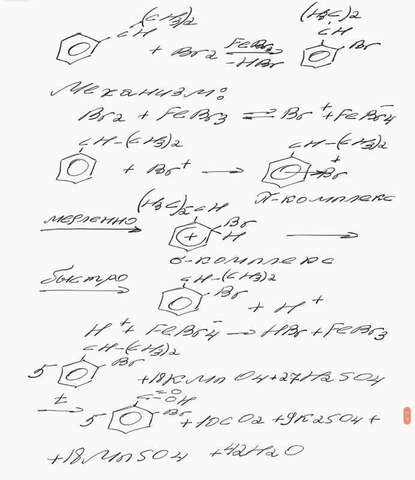 CH(CH3)2 + Br2 FeBr3 -HBr (H3C)2 CH Br
Механизм:
Br2 + FeBr3 ⇌ Br+ + FeBr4-
CH-(CH3)2 + Br+ → CH-(CH3)2 Br+
π-комплекс
медленно (H3C)2CH Br H + →
σ-комплекс
быстро CH-(CH3)2 Br + H+
H+ + FeBr4- → HBr + FeBr3
5 CH-(CH3)2 Br +18KMnO4+27H2SO4
t → 5 C=O OH Br +10CO2 +9K2SO4+
+18MnSO4 +42H2O